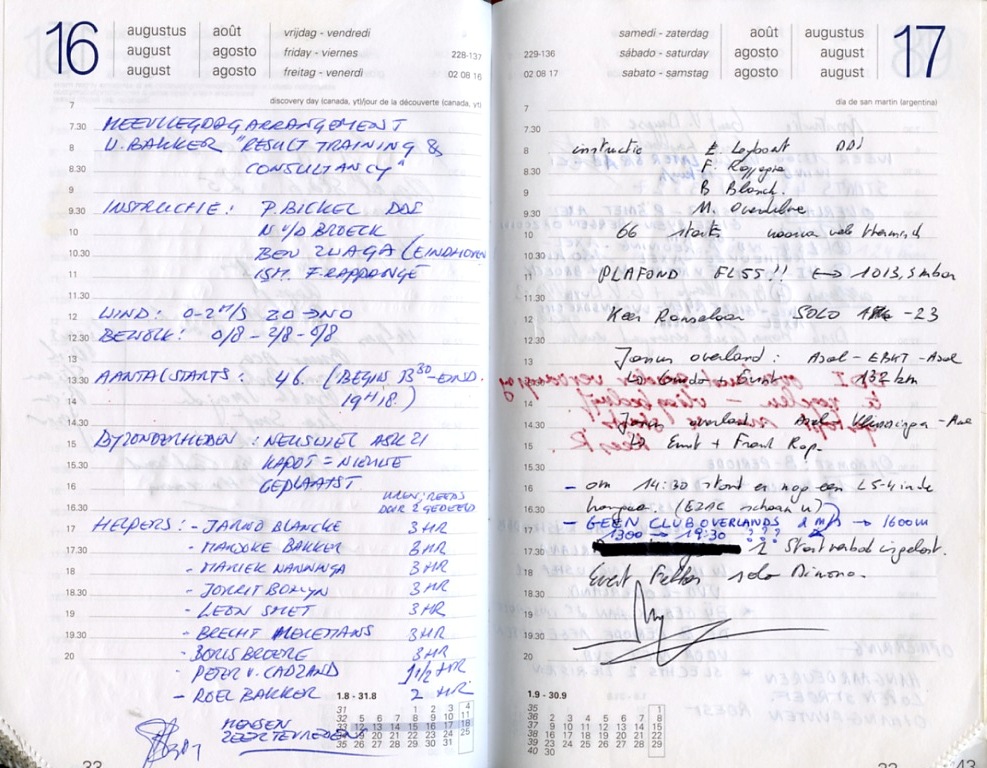 16
augustus août vrijdag - vendredi
august agosto friday - viernes 228-137
august agosto freitag - venerdì 02 08 16
discovery day (canada, yt)/jour de la découverte (canada, yt)
7
7.30 MEEVLIEGDAGARRANGEMENT
8 V. BAKKER "RESULT TRAINING &
8.30 CONSULTANCY"
9
9.30 INSTRUCTIE: P. BICKEL DDI
10 N v/d BROECK
10.30 BEN ZWAGA (EINDHOVEN
11 ISM. F RAPPANGE
11.30
12 WIND: 0-2 M/S ZO → NO
12.30 BEWOLK: 0/8 - 2/8 - 0/8
13
13.30 AANTAL STARTS: 46. (BEGIN 13 30 - EIND
14 19H18.)
14.30
15 BYZONDERHEDEN: NEUSWIEL ASK 21
15.30 KAPOT = NIEUWE
16 GEPLAATST
16.30 UREN; REEDS
DOOR 2 GEDEELD
17 HELPERS: - JARNO BLANCKE 3 HR
17.30 - MARJOKE BAKKER 3 HR
- MARIEK NANNINGA 3 HR
18
18.30 - JORRIT BOMYN 3 HR
19 - LEON SMET 3 HR
19.30 - BRECHT 3 HR
20 - BORIS BROERE 3 HR
- PETER V. CADZAND 1 1/2 HR
- ROEL BAKKER 2 HR
1.8 - 31.8
MENSEN
ZEER TEVREDEN
31 1 2 3 4
32 5 6 7 8 9 10 11
33 12 13 14 15 16 17 18
34 19 20 21 22 23 24 25
35 26 27 28 29 30 31
17
samedi - zaterdag août augustus
229-136 sábado - saturday agosto august
02 08 17 sabato - samstag agosto august
día de san martín (argentina)
7
7.30
8 instructie E. DDI
8.30 F.
9 B Blanck.
9.30 M.
10 66 starts
10.30
11 PLAFOND FL55!! ↔ 1013,5 mbar
11.30
12 Kees SOLO - 23
12.30
13 overland: Axel - EBKT - Axel
13.30 132 km
14
14.30 overland Axel Vlissingen - Axel
15 Evert + Frank Rap.
15.30
16 - om 14:30 stond er nog een LS-4 in de
16.30 hangar. (EZAC schaam u)
17 - GEEN CLUBOVERLANDS 2 m/s → 1600 m
1300 → 19:30 ???
17.30 1 Startverbod ingelost.
18 Evert solo Dimona.
18.30
19
19.30
20
1.9 - 30.9
35 1
36 2 3 4 5 6 7 8
37 9 10 11 12 13 14 15
38 16 17 18 19 20 21 22
39 23 24 25 26 27 28 29
40 30